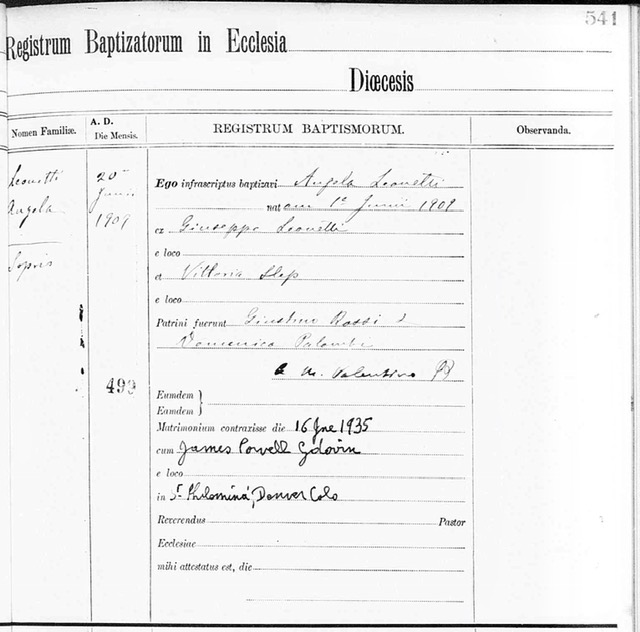 541
Registrum Baptizatorum in Ecclesia
Diœcesis
Nomen Familiæ.
A. D.
Die Mensis.
REGISTRUM BAPTISMORUM.
Observanda.
Leonetti
Angela
Sopris
20
Junii
1909
499
Ego infrascriptus baptizavi Angela Leonetti
nat am 1ª Junii 1909
ex Giuseppe Leonetti
e loco
et Vittoria
e loco
Patrini fuerunt Giustino Rossi &
Domenica Palombi
Eumdem }
Eamdem
Matrimonium contraxisse die 16 Jne 1935
cum James Powell
e loco
in St Philomina, Denver Colo
Reverendus Pastor
Ecclesiae
mihi attestatus est, die